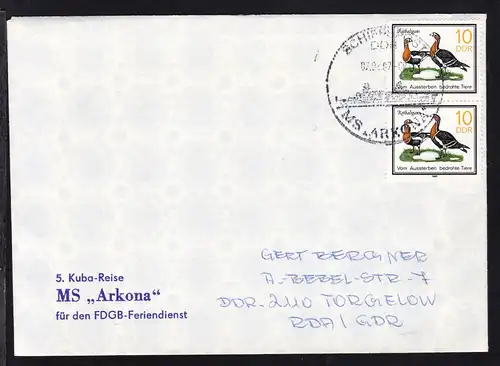 Rothalsgans 10
DDR
Vom Aussterben bedrohte Tiere
Rothalsgans 10
DDR
Vom Aussterben bedrohte Tiere
MS „ARKONA"
5. Kuba-Reise
MS „Arkona"
für den FDGB-Feriendienst
GERT BERCHNER
A.-BEBEL-STR. 7
DDR-2110 TORGELOW
RDA / GDR